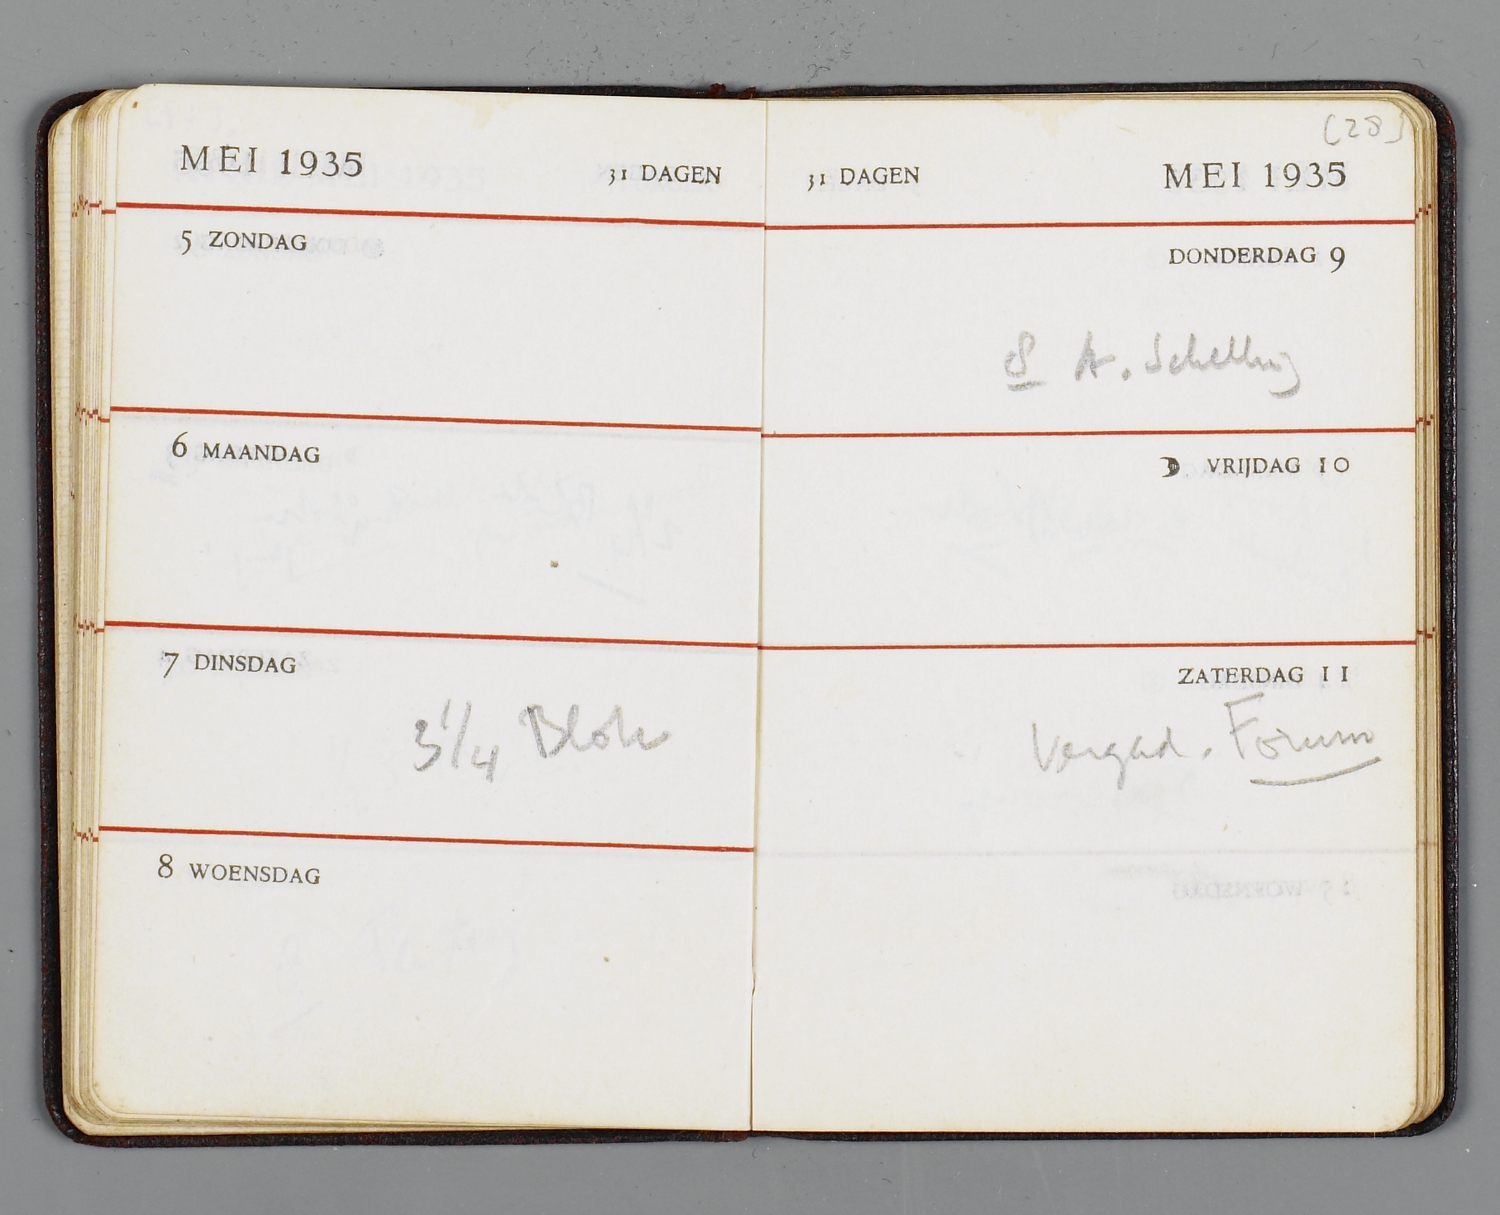 MEI 1935 31 DAGEN
5 ZONDAG
6 MAANDAG
7 DINSDAG
3 1/4 Blok
8 WOENSDAG
[28]
31 DAGEN MEI 1935
DONDERDAG 9
8 A. Schelling
VRIJDAG 10
ZATERDAG 11
Vergad. Forum